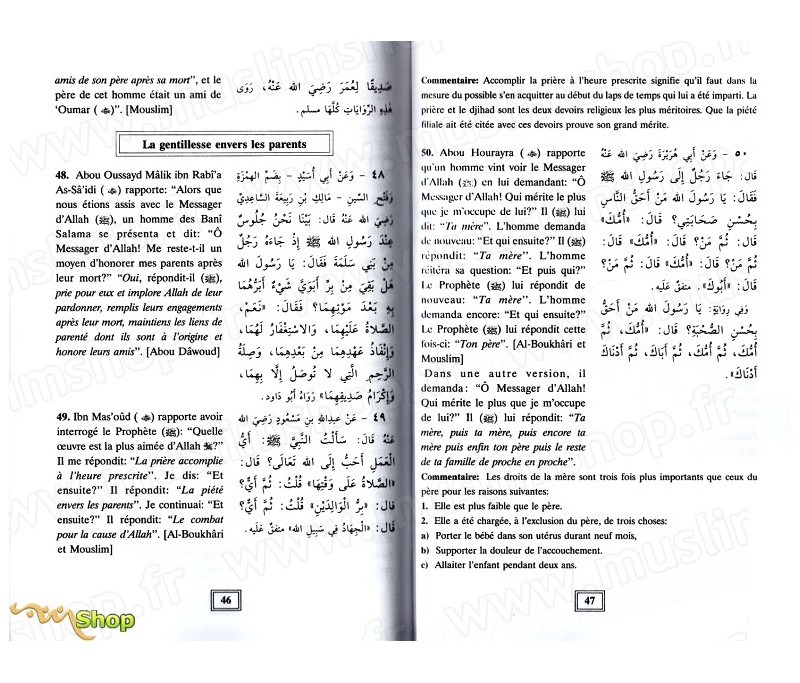 amis de son père après sa mort”, et le
père de cet homme était un ami de
‘Oumar ( ﷺ )”. [Mouslim]
صَدِيقًا لِعُمَرَ رَضِيَ الله عَنْهُ، رَوَى
هٰذِهِ الرِّوَايَاتِ كُلَّهَا مسلم.
La gentillesse envers les parents
48. Abou Oussayd Mâlik ibn Rabî’a
As-Sâ’idi ( ) rapporte: “Alors que
nous étions assis avec le Messager
d’Allah (ﷺ), un homme des Banî
Salama se présenta et dit: “Ô
Messager d’Allah! Me reste-t-il un
moyen d’honorer mes parents après
leur mort?” “Oui, répondit-il (ﷺ),
prie pour eux et implore Allah de leur
pardonner, remplis leurs engagements
après leur mort, maintiens les liens de
parenté dont ils sont à l’origine et
honore leurs amis”. [Abou Dâwoud]
٤٨ - وَعَنْ أَبِي أُسَيْدٍ - بِضَمِّ الهَمْزَةِ
وَفَتْحِ السِّينِ - مَالِكِ بْنِ رَبِيعَةَ السَّاعِدِيِّ
رَضِيَ الله عَنْهُ قَالَ: بَيْنَا نَحْنُ جُلُوسٌ
عِنْدَ رَسُولِ الله ﷺ إِذْ جَاءَهُ رَجُلٌ
مِنْ بَنِي سَلَمَةَ فَقَالَ: يَا رَسُولَ الله
هَلْ بَقِيَ مِنْ بِرِّ أَبَوَيَّ شَيْءٌ أَبَرُّهُمَا
بِهِ بَعْدَ مَوْتِهِمَا؟ فَقَالَ: «نَعَمْ،
الصَّلَاةُ عَلَيْهِمَا، وَالاسْتِغْفَارُ لَهُمَا،
وَإِنْفَاذُ عَهْدِهِمَا مِنْ بَعْدِهِمَا، وَصِلَةُ
الرَّحِمِ الَّتِي لا تُوصَلُ إِلَّا بِهِمَا،
وَإِكْرَامُ صَدِيقِهِمَا» رَوَاهُ أَبو دَاود.
49. Ibn Mas’oûd ( ) rapporte avoir
interrogé le Prophète (ﷺ): “Quelle
œuvre est la plus aimée d’Allah ?”
Il me répondit: “La prière accomplie
à l’heure prescrite”. Je dis: “Et
ensuite?” Il répondit: “La piété
envers les parents”. Je continuai: “Et
ensuite?” Il répondit: “Le combat
pour la cause d’Allah”. [Al-Boukhâri
et Mouslim]
٤٩ - عَنْ عبدِالله بنِ مَسْعُودٍ رَضِيَ الله
عَنْهُ قَالَ: سَأَلْتُ النَّبِيَّ ﷺ: أَيُّ
الْعَمَلِ أَحَبُّ إِلَى الله تَعَالَى؟ قَالَ:
«الصَّلَاةُ عَلَى وَقْتِهَا» قُلْتُ: ثُمَّ أَيٌّ؟
قال: «بِرُّ الْوَالِدَيْنِ» قُلْتُ: ثُمَّ أَيٌّ؟
قَالَ: «الْجِهَادُ فِي سَبِيلِ الله» متفقٌ عَلَيْهِ.
46
Commentaire: Accomplir la prière à l’heure prescrite signifie qu’il faut dans la
mesure du possible s’en acquitter au début du laps de temps qui lui a été imparti. La
prière et le djihad sont les deux devoirs religieux les plus méritoires. Que la piété
filiale ait été citée avec ces devoirs prouve son grand mérite.
50. Abou Hourayra ( ) rapporte
qu’un homme vint voir le Messager
d’Allah (ﷺ) en lui demandant: “Ô
Messager d’Allah! Qui mérite le plus
que je m’occupe de lui?” Il (ﷺ) lui
dit: “Ta mère”. L’homme demanda
de nouveau: “Et qui ensuite?” Il (ﷺ)
répondit: “Ta mère”. L’homme
réitéra sa question: “Et puis qui?”
Le Prophète (ﷺ) lui répondit de
nouveau: “Ta mère”. L’homme
demanda encore: “Et qui ensuite?”
Le Prophète (ﷺ) lui répondit cette
fois-ci: “Ton père”. [Al-Boukhâri et
Mouslim]
Dans une autre version, il
demanda: “Ô Messager d’Allah!
Qui mérite le plus que je m’occupe
de lui?” Il (ﷺ) lui répondit: “Ta
mère, puis ta mère, puis encore ta
mère puis enfin ton père puis le reste
de ta famille de proche en proche”.
٥٠ - وَعَنْ أَبِي هُرَيْرَةَ رَضِيَ الله عَنْهُ
قال: جَاءَ رَجُلٌ إِلَى رَسُولِ الله ﷺ
فَقَالَ: يَا رَسُولَ الله مَنْ أَحَقُّ النَّاسِ
بِحُسْنِ صَحَابَتِي؟ قَالَ: «أُمُّكَ»
قَالَ: ثُمَّ مَنْ؟ قَالَ: «أُمُّكَ» قَالَ: ثُمَّ
مَنْ؟ قَالَ: «أُمُّكَ» قَالَ: ثُمَّ مَنْ؟
قَالَ: «أَبُوكَ». متفقٌ عَلَيه.
وَفي رِوَايَةٍ: يَا رَسُولَ الله مَنْ أَحَقُّ
بِحُسْنِ الصُّحْبَةِ؟ قال: «أُمُّكَ، ثُمَّ
أُمُّكَ، ثُمَّ أُمُّكَ، ثُمَّ أَبَاكَ، ثُمَّ أَدْنَاكَ
أَدْنَاكَ».
Commentaire: Les droits de la mère sont trois fois plus importants que ceux du
père pour les raisons suivantes:
1. Elle est plus faible que le père.
2. Elle a été chargée, à l’exclusion du père, de trois choses:
a) Porter le bébé dans son utérus durant neuf mois,
b) Supporter la douleur de l’accouchement.
c) Allaiter l’enfant pendant deux ans.
47
Shop
www.muslimshop.fr